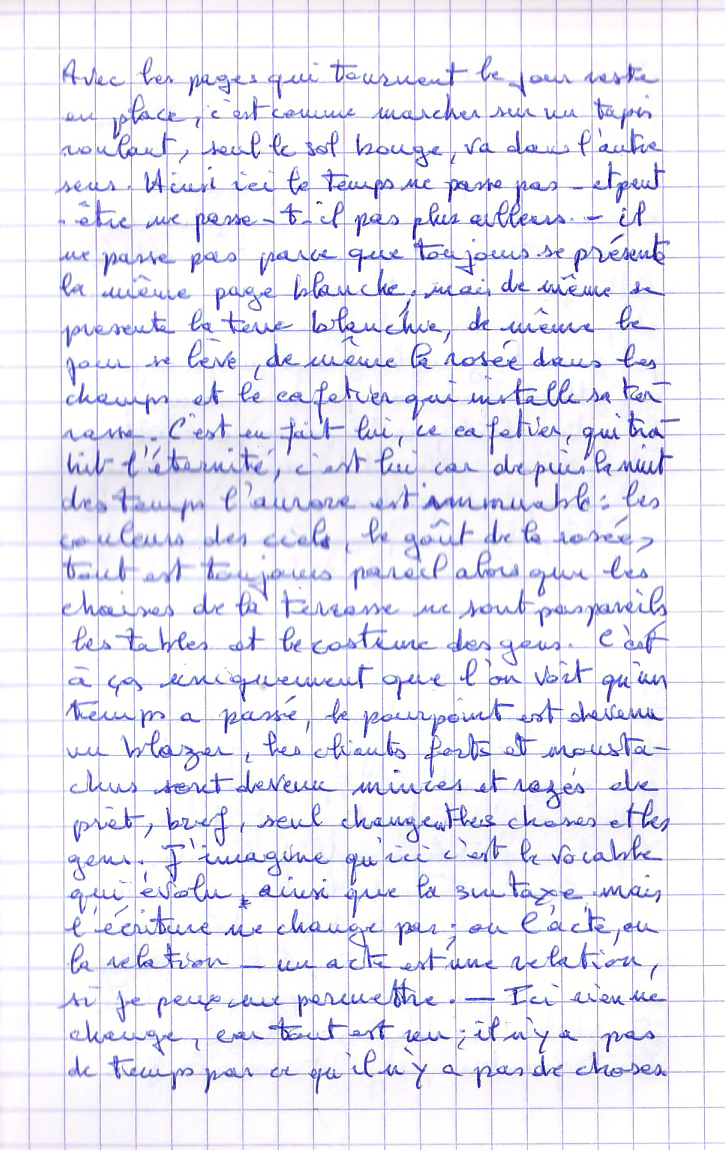 Avec les pages qui tournent le jour reste
en place, c'est comme marcher sur un tapis
roulant, seul le sol bouge, va dans l'autre
sens. Ainsi ici le temps ne passe pas – et peut
-être ne passe-t-il pas plus ailleurs. – il
ne passe pas parce que toujours se présente
la même page blanche, mais de même se
présente la terre blanchie, de même le
jour se lève, de même la rosée dans les
champs et le cafetier qui installe sa ter-
rasse. C'est en fait lui, ce cafetier, qui tra-
hit l'éternité, c'est lui car depuis la nuit
des temps l'aurore est immuable : les
couleurs des ciels, le goût de la rosée,
tout est toujours pareil alors que les
chaises de la terrasse ne sont pas pareils
les tables et le costume des gens. C'est
à ça uniquement que l'on voit qu'un
temps a passé, le pourpoint est devenu
un blazer, les clients forts et mousta-
chus sont devenu minces et rasés de
prêt, bref, seul changent les choses et les
gens. J'imagine qu'ici c'est le vocable
qui évolu, ainsi que la syntaxe mais
l'écriture ne change pas ; ou l'acte, ou
la relation – un acte est une relation,
si je peux me permettre. – Ici rien ne
change, car tout est rien ; il n'y a pas
de temps par ce qu'il n'y a pas de choses